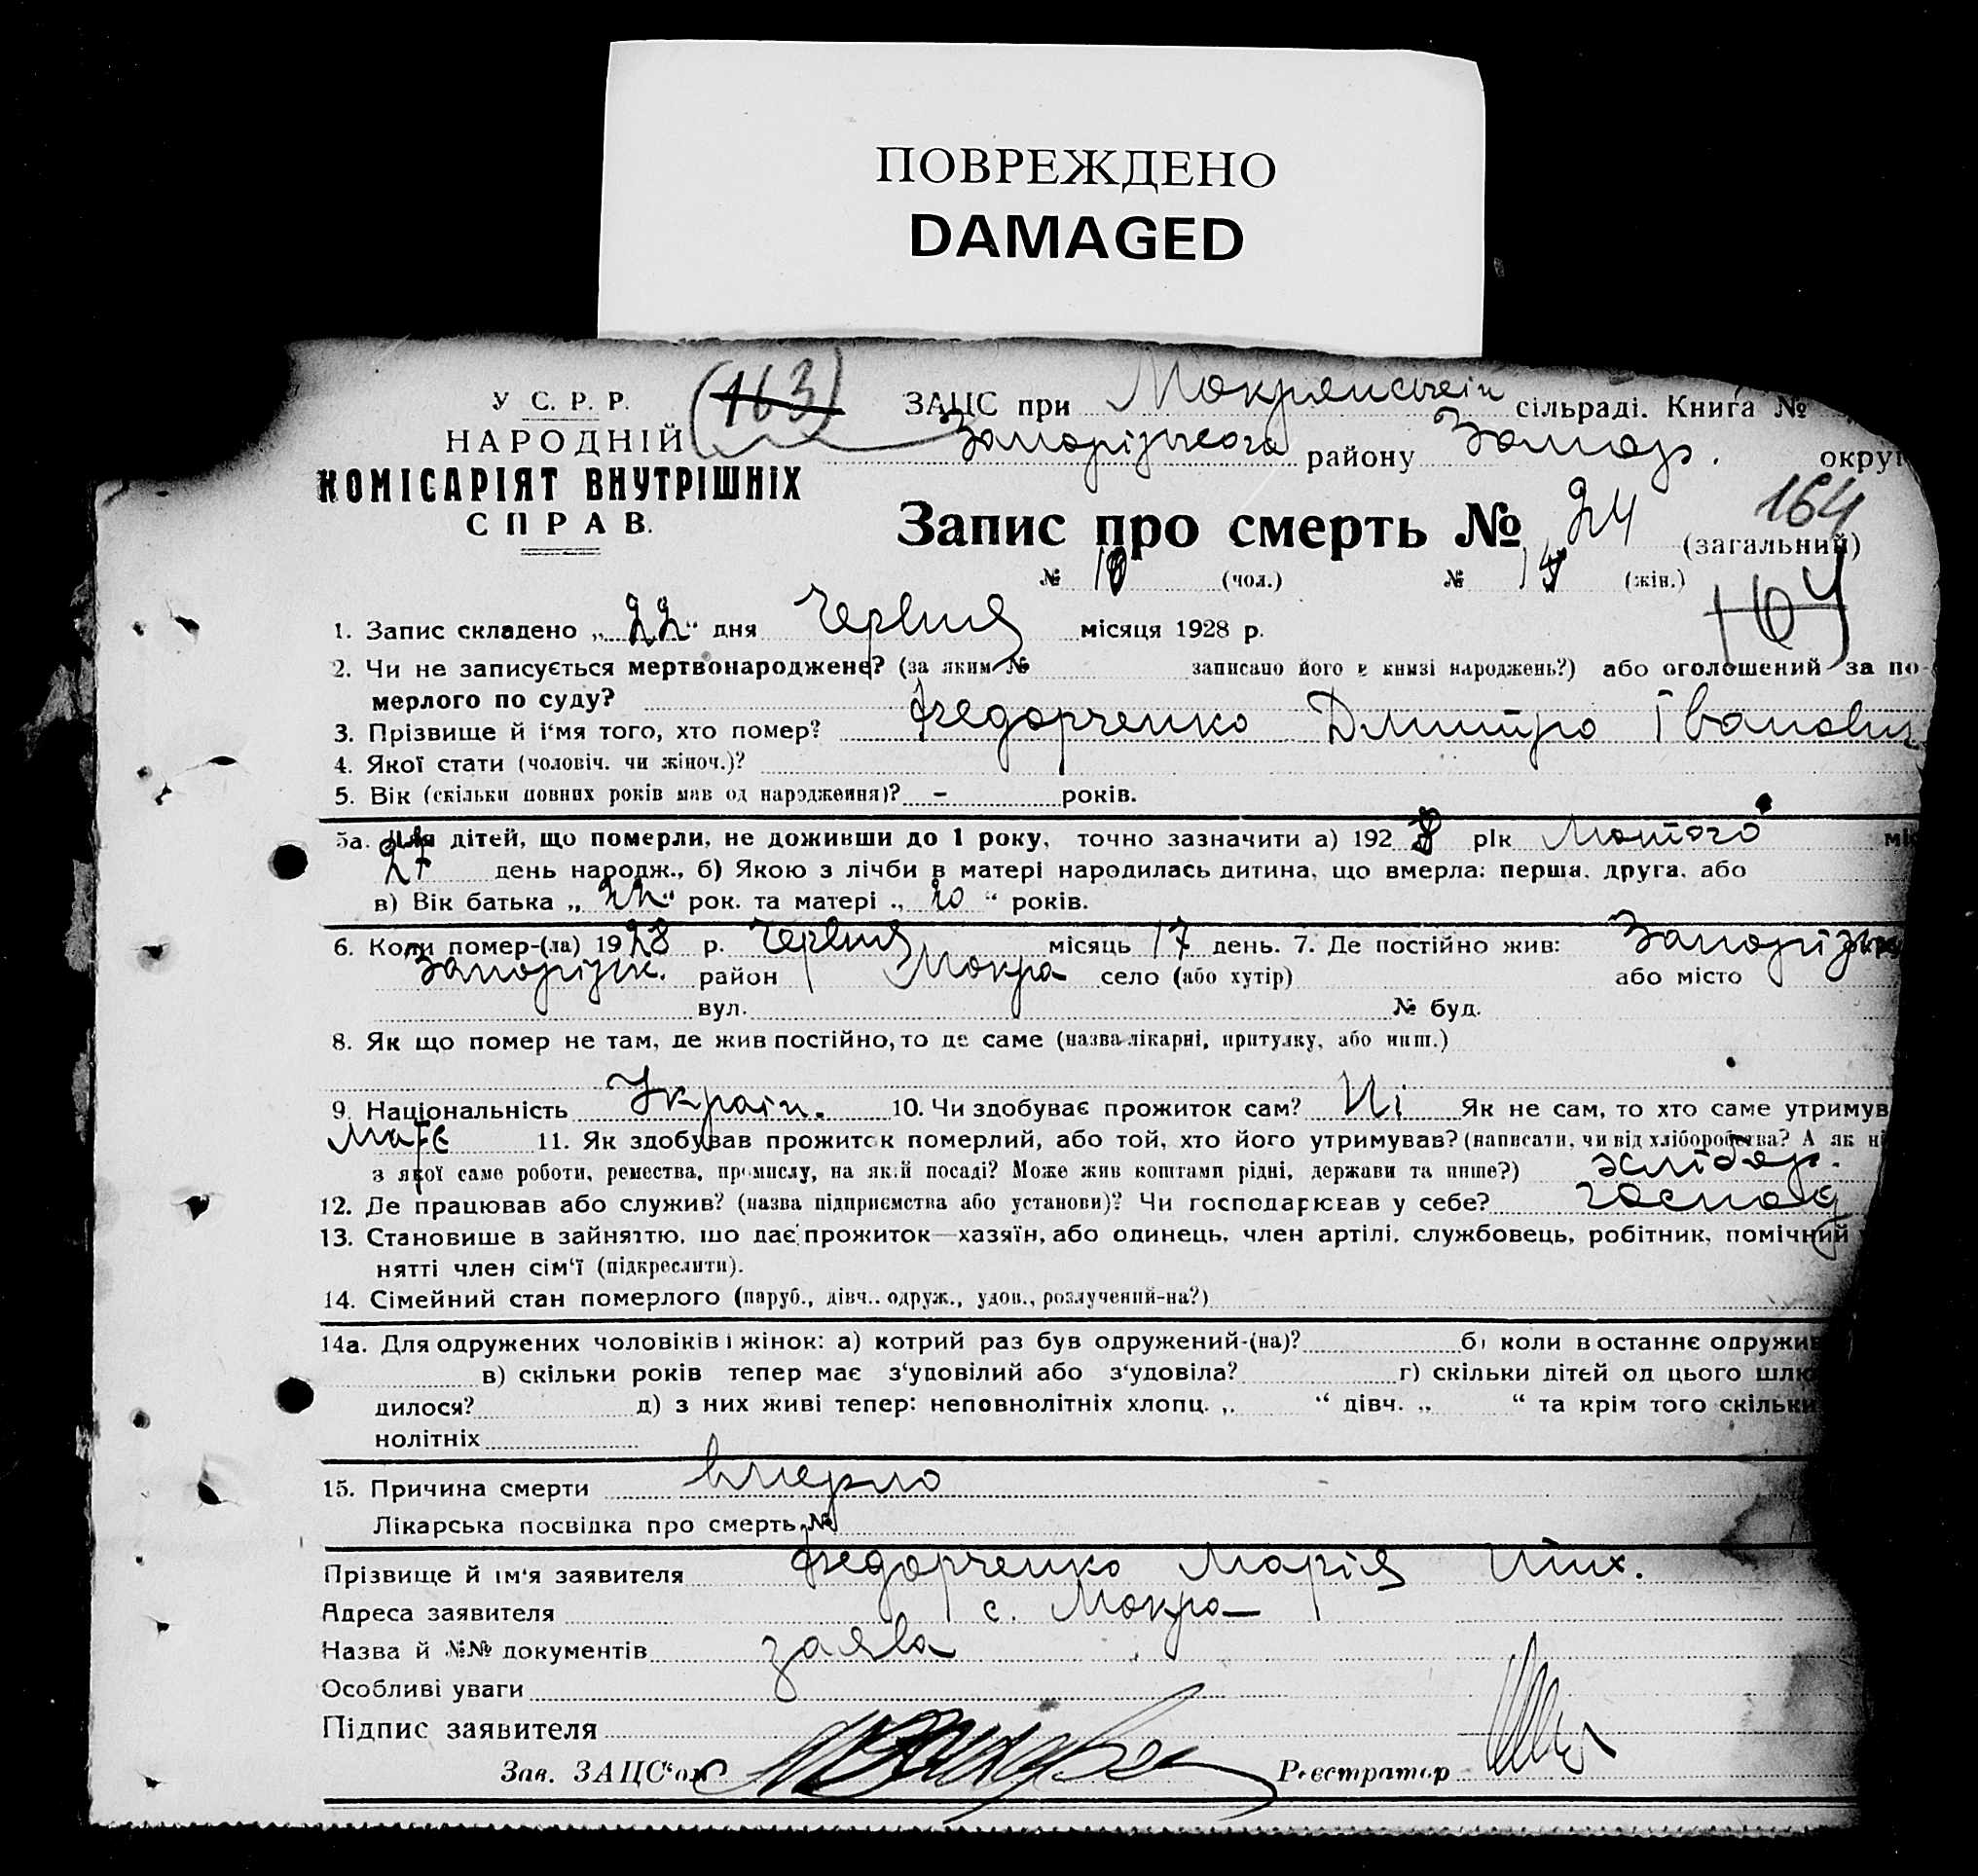 ПОВРЕЖДЕНО
DAMAGED
У С. Р. Р.
НАРОДНІЙ
КОМІСАРІЯТ ВНУТРІШНІХ
СПРАВ.
(163)
ЗАЦС при Мокрянській сільраді. Книга №
Запорізького району Запор. округ
Запис про смерть № 24 (загальний)
164
№ 10 (чол.) № 14 (жін.)
164
1. Запис складено „22“ дня Червня місяця 1928 р.
2. Чи не записується мертвонароджене? (за яким № записано його в книзі народжень?) або оголошений за по-
мерлого по суду?
3. Прізвище й і‘мя того, хто помер? Федорченко Дмитро Іванович
4. Якої стати (чоловіч. чи жіноч.)?
5. Вік (скільки повних років мав од народження)? – років.
5а. Для дітей, що померли, не доживши до 1 року, точно зазначити а) 1928 рік Лютого мі
27 день народж., б) Якою з лічби в матері народилась дитина, що вмерла: перша, друга, або
в) Вік батька „22“ рок. та матері „20“ років.
6. Коли помер-(ла) 1928 р. Червня місяць 17 день. 7. Де постійно жив: Запорізьк
Запорізьк. район Мокра село (або хутір) або місто
вул. № буд.
8. Як що помер не там, де жив постійно, то де саме (назва лікарні, притулку, або инш.)
9. Національність Україн. 10. Чи здобуває прожиток сам? Ні Як не сам, то хто саме утримув
11. Як здобував прожиток померлий, або той, хто його утримував? (написати, чи від хліборобства? А як ні
з якої саме роботи, ремества, промислу, на якій посаді? Може жив коштами рідні, держави та инше?) хлібор.
12. Де працював або служив? (назва підприємства або установи)? Чи господарював у себе? господ
13. Становище в зайняттю, що дає прожиток—хазяїн, або одинець, член артілі, службовець, робітник, помічний
нятті член сім‘ї (підкреслити).
14. Сімейний стан померлого (паруб., дівч., одруж., удов., розлучений-на?)
14а. Для одружених чоловіків і жінок: а) котрий раз був одружений-(на)? б) коли в останнє одружив
в) скільки років тепер має з‘удовілий або з‘удовіла? г) скільки дітей од цього шлю
дилося? д) з них живі тепер: неповнолітніх хлопц. „ “ дівч. „ “ та крім того скільки
нолітніх
15. Причина смерти вмерло
Лікарська посвідка про смерть №
Прізвище й ім‘я заявителя Федорченко Марія Тих.
Адреса заявителя с. Мокра
Назва й №№ документів заява
Особливі уваги
Підпис заявителя
Зав. ЗАЦС‘ом Реєстратор